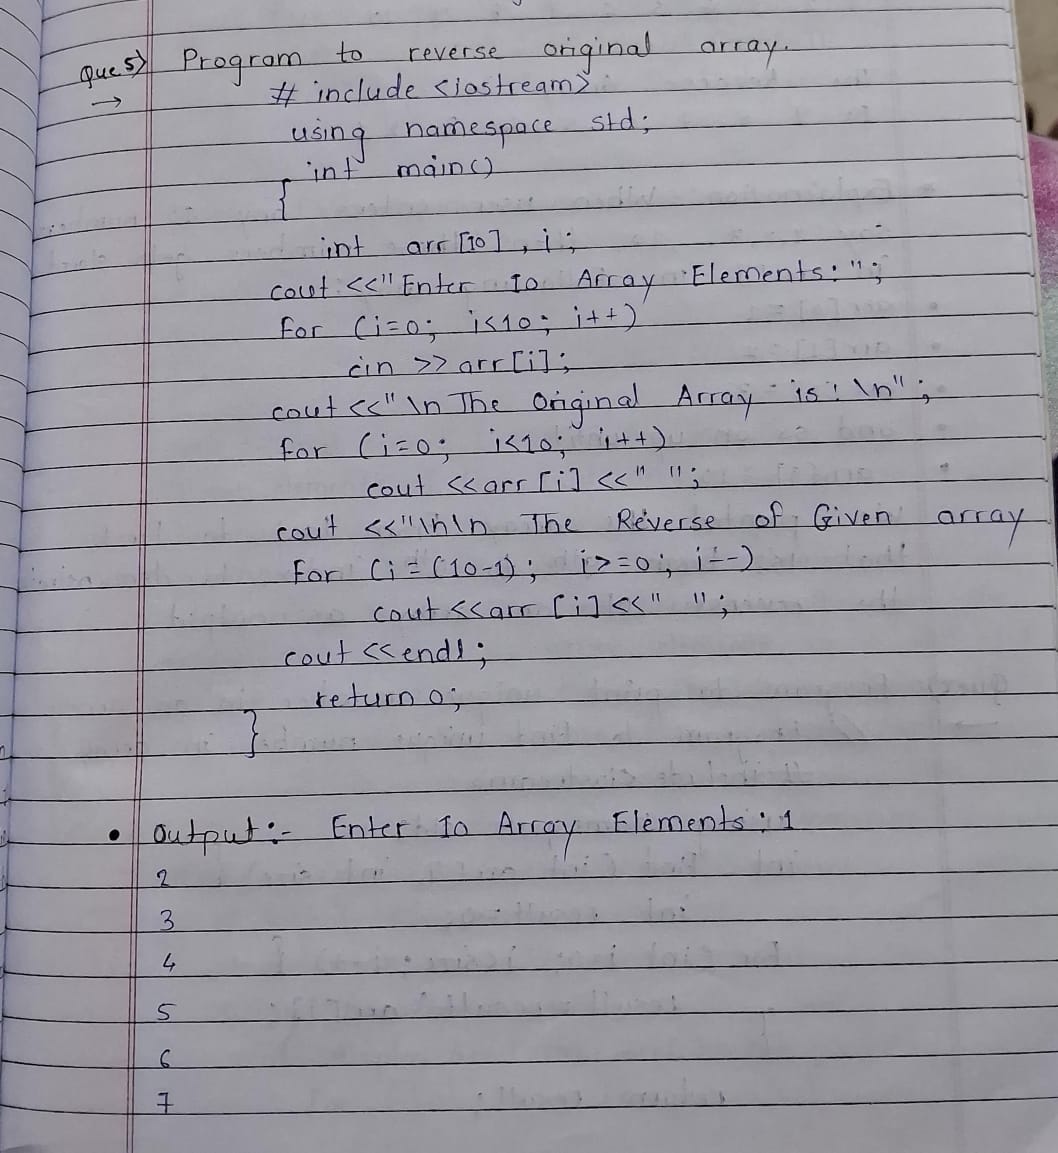 Que 5) Program to reverse original array.
→ # include <iostream>
using namespace std;
int main()
{
int arr [10], i;
cout <<"Enter 10 Array Elements: ";
For (i=0; i<10; i++)
cin >> arr[i];
cout <<"\n The Original Array is: \n";
for (i=0; i<10; i++)
cout <<arr [i] <<" ";
cout <<"\n\n The Reverse of Given array
For (i = (10-1); i>=0; i--)
cout <<arr [i] <<" ";
cout <<endl;
return 0;
}
• output:- Enter 10 Array Elements: 1
2
3
4
5
6
7